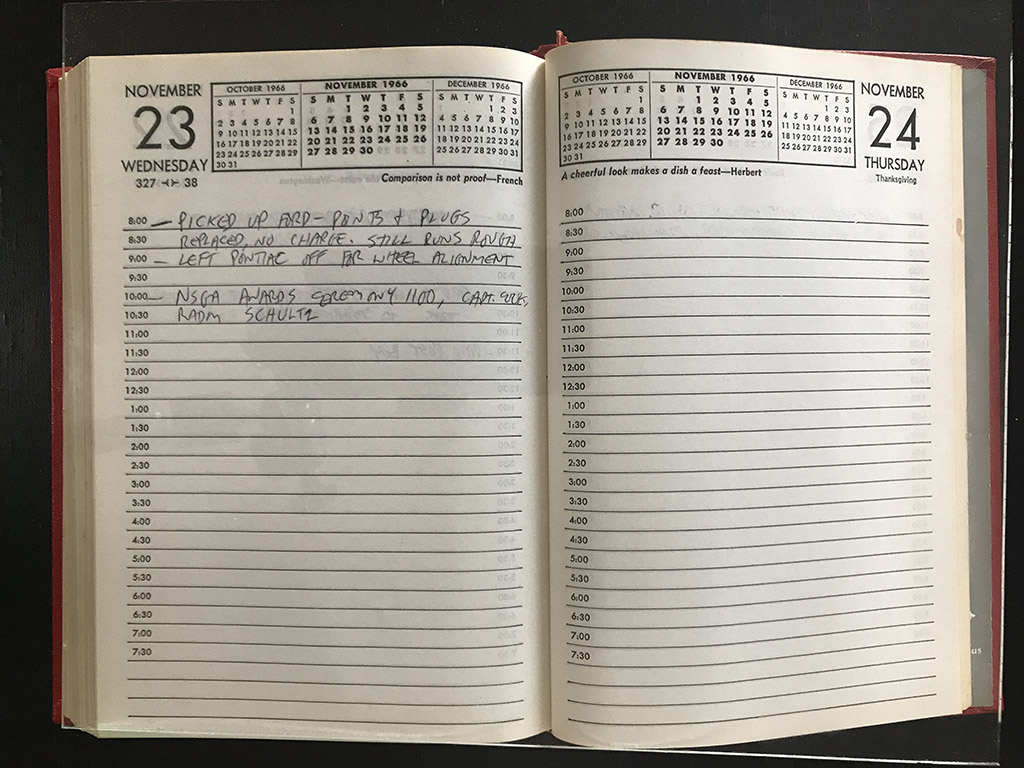 NOVEMBER
23
WEDNESDAY
327 38
OCTOBER 1966
S M T W T F S
1
2 3 4 5 6 7 8
9 10 11 12 13 14 15
16 17 18 19 20 21 22
23 24 25 26 27 28 29
30 31
NOVEMBER 1966
S M T W T F S
1 2 3 4 5
6 7 8 9 10 11 12
13 14 15 16 17 18 19
20 21 22 23 24 25 26
27 28 29 30
DECEMBER 1966
S M T W T F S
1 2 3
4 5 6 7 8 9 10
11 12 13 14 15 16 17
18 19 20 21 22 23 24
25 26 27 28 29 30 31
Comparison is not proof—French
8:00 — PICKED UP FORD – POINTS & PLUGS
8:30 REPLACED, NO CHARGE. STILL RUNS ROUGH
9:00 — LEFT PONTIAC OFF FOR WHEEL ALIGNMENT
9:30
10:00 — NSGA AWARDS CEREMONY 1100, CAPT.
10:30 RADM SCHULTZ
11:00
11:30
12:00
12:30
1:00
1:30
2:00
2:30
3:00
3:30
4:00
4:30
5:00
5:30
6:00
6:30
7:00
7:30
OCTOBER 1966
S M T W T F S
1
2 3 4 5 6 7 8
9 10 11 12 13 14 15
16 17 18 19 20 21 22
23 24 25 26 27 28 29
30 31
NOVEMBER 1966
S M T W T F S
1 2 3 4 5
6 7 8 9 10 11 12
13 14 15 16 17 18 19
20 21 22 23 24 25 26
27 28 29 30
DECEMBER 1966
S M T W T F S
1 2 3
4 5 6 7 8 9 10
11 12 13 14 15 16 17
18 19 20 21 22 23 24
25 26 27 28 29 30 31
NOVEMBER
24
THURSDAY
Thanksgiving
A cheerful look makes a dish a feast—Herbert
8:00
8:30
9:00
9:30
10:00
10:30
11:00
11:30
12:00
12:30
1:00
1:30
2:00
2:30
3:00
3:30
4:00
4:30
5:00
5:30
6:00
6:30
7:00
7:30